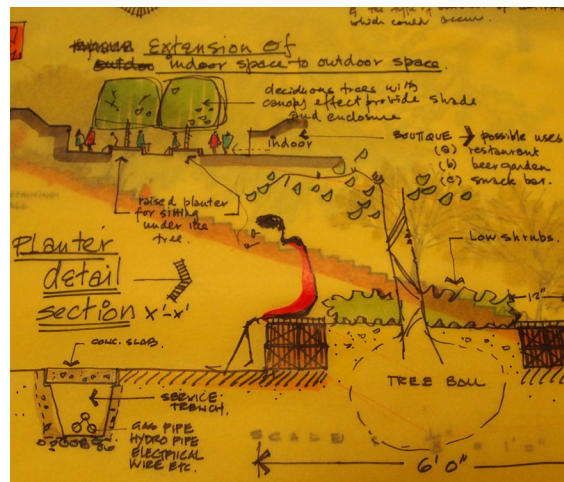 which could occur.
Extension of
indoor space to outdoor space.
deciduous trees with
canopy effect provide shade
and enclosure
indoor
BOUTIQUE → possible uses
(a) restaurant
(b) beergarden
(c) snack bar.
raised planter
for sitting
under the
tree.
Planter
detail
section x'-x'
LOW SHRUBS.
12"
CONC. SLAB.
SERVICE
TRENCH.
GAS PIPE
HYDRO PIPE
ELECTRICAL
WIRE ETC.
TREE BALL
SCALE
= 1'0"
6'0"